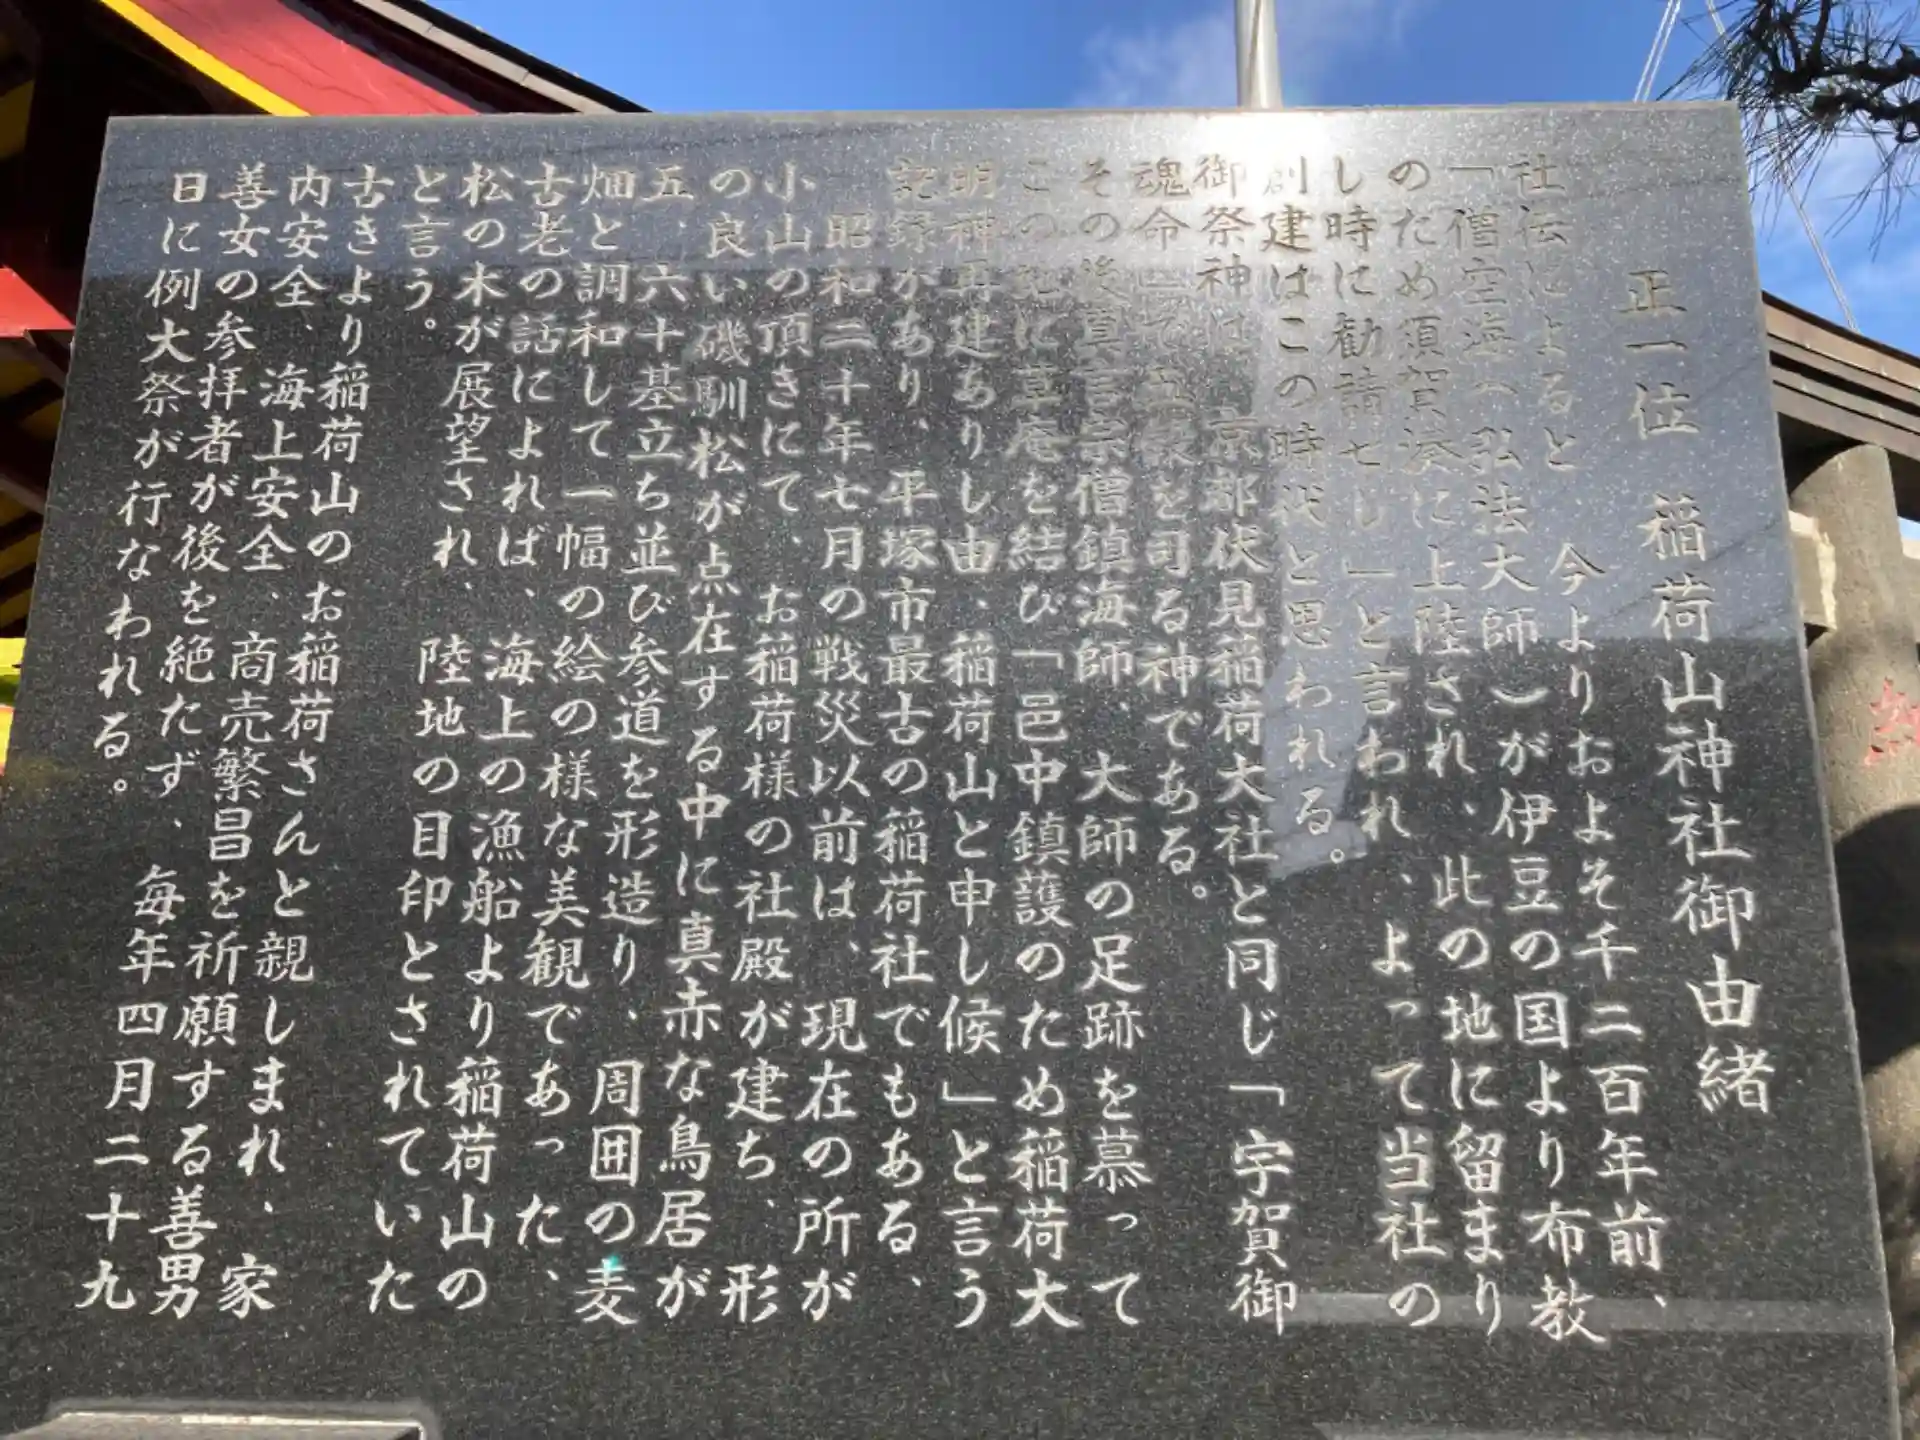 正一位 稲荷山神社御由緒
社伝によると 今よりおよそ千二百年前、
「僧空海（弘法大師）が伊豆の国より布教
のため須賀湊に上陸され、此の地に留まり
し時に勧請せし」と言われ、よって当社の
創建はこの時代と思われる。
御祭神は、京都伏見稲荷大社と同じ「宇賀御
魂命」で五穀を司る神である。
その後真言宗僧鎮海師、大師の足跡を慕って
この地に草庵を結び「邑中鎮護のため稲荷大
明神再建ありし由、稲荷山と申し候」と言う
記録があり、平塚市最古の稲荷社でもある、
昭和二十年七月の戦災以前は、現在の所が
小山の頂きにて、お稲荷様の社殿が建ち、形
の良い磯馴松が点在する中に真赤な鳥居が
五、六十基立ち並び参道を形造り、周囲の麦
畑と調和して一幅の絵の様な美観であった、
古老の話によれば、海上の漁船より稲荷山の
松の木が展望され、陸地の目印とされていた
と言う。
古きより稲荷山のお稲荷さんと親しまれ、家
内安全、海上安全、商売繁昌を祈願する善男
善女の参拝者が後を絶たず、毎年四月二十九
日に例大祭が行なわれる。